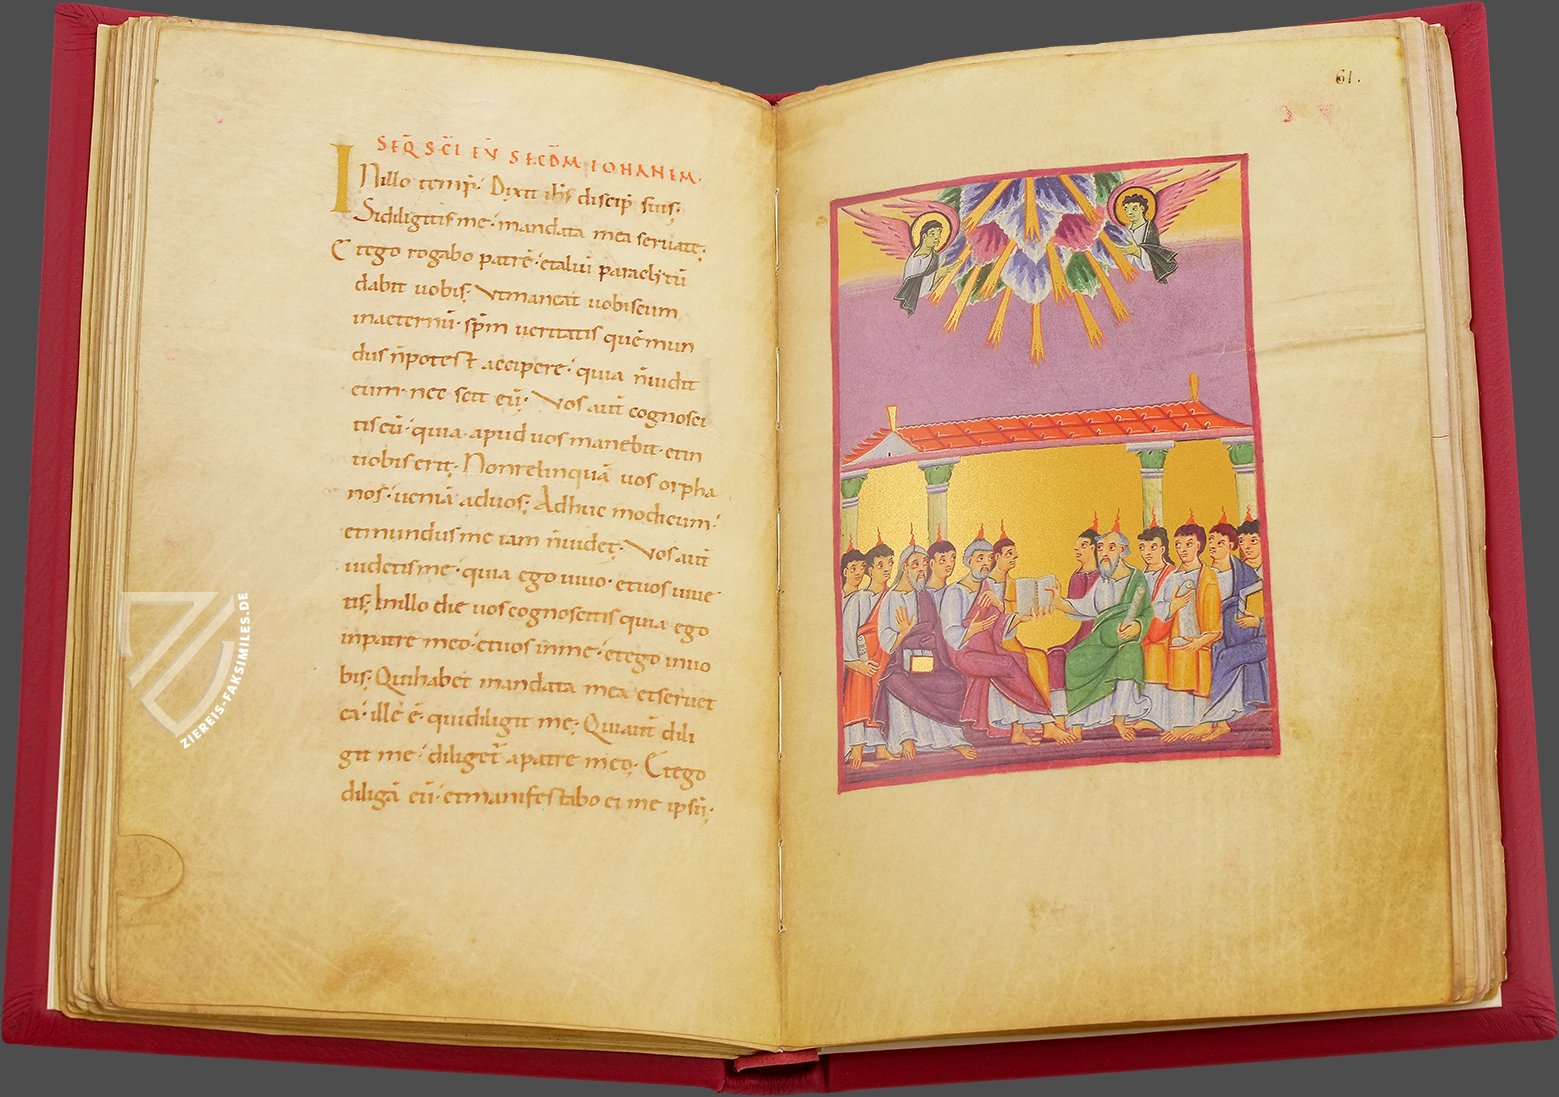 SEQ̄ SC̄I EV̄ SECD̄M IOHANEM.
INillo temp̄. Dixit ihs̄ discip̄ suis;
Sidiligitis me. mandata mea seruate;
Etego rogabo patrē. etaliū paraclitū
dabit uobis; Vtmaneat uobiscum
inaeternū. sp̄m ueritatis quēmun
dus n̄potest accipere. quia n̄uidit
eum. nec scit eū; Vos aut̄ cognosci
tiseū. quia apud uos manebit. etin
uobiserit; Nonrelinquā uos orpha
nos. ueniā aduos; Adhuc modicum.
etmundusme iam n̄uidet; Vos aut̄
uidetisme. quia ego uiuo. etuos uiue
tis; Inillo die uos cognoscitis quia ego
inpatre meo. etuos inme. etego inuo
bis; Quihabet mandata mea etseruat
ea. ille ē. quidiligit me; Quiaut̄ dili
git me. diliget̄ apatre meo; Etego
diligā eū. etmanifestabo ei me ipsū.
61.
ZIEREIS-FAKSIMILES.DE